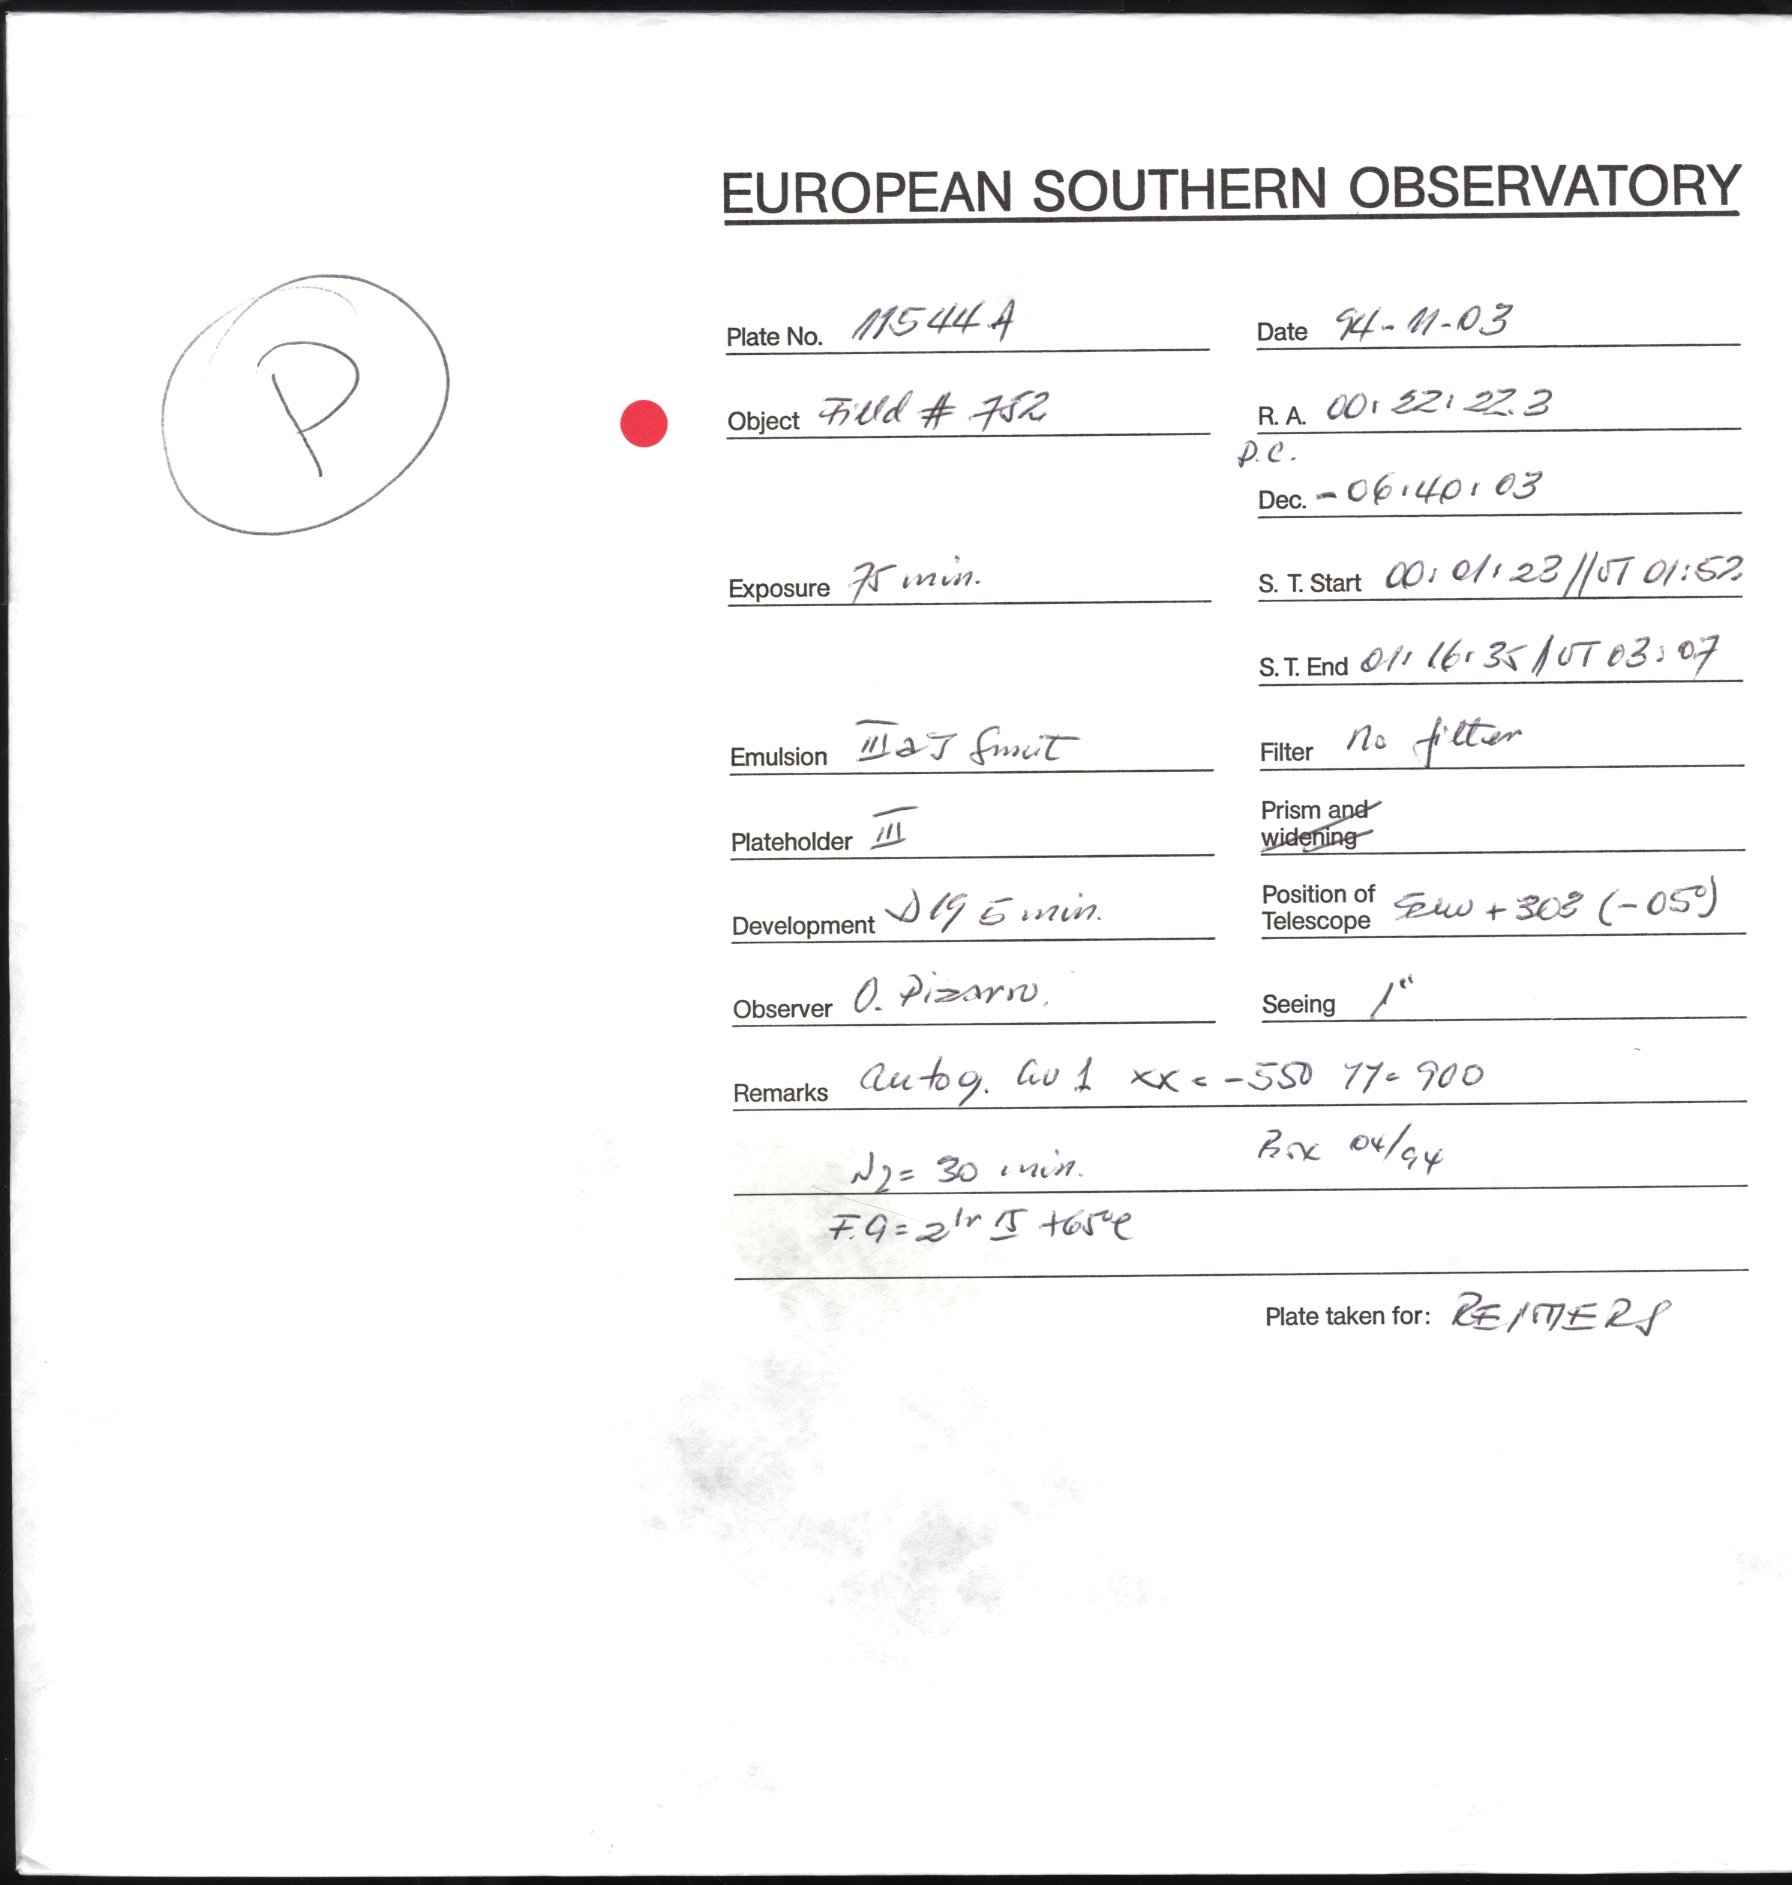 EUROPEAN SOUTHERN OBSERVATORY
P
Plate No. 11544A
Date 94-11-03
Object Field # 752
R. A. 00: 22: 22.3
P.C.
Dec. -06:40:03
Exposure 75 min.
S. T. Start 00:01:23//UT 01:52
S. T. End 01:16:35/UT 03:07
Emulsion IIIaJ
Filter no filter
Plateholder III
Prism and
widening
Development D19 5 min.
Position of
Telescope +303 (-05°)
Observer O. Pizarro.
Seeing 1"
Remarks autog. 1 xx=-550 YY=900
N2= 30 min.
Box 04/94
F.G = 2hr +65°C
Plate taken for: REIMERS